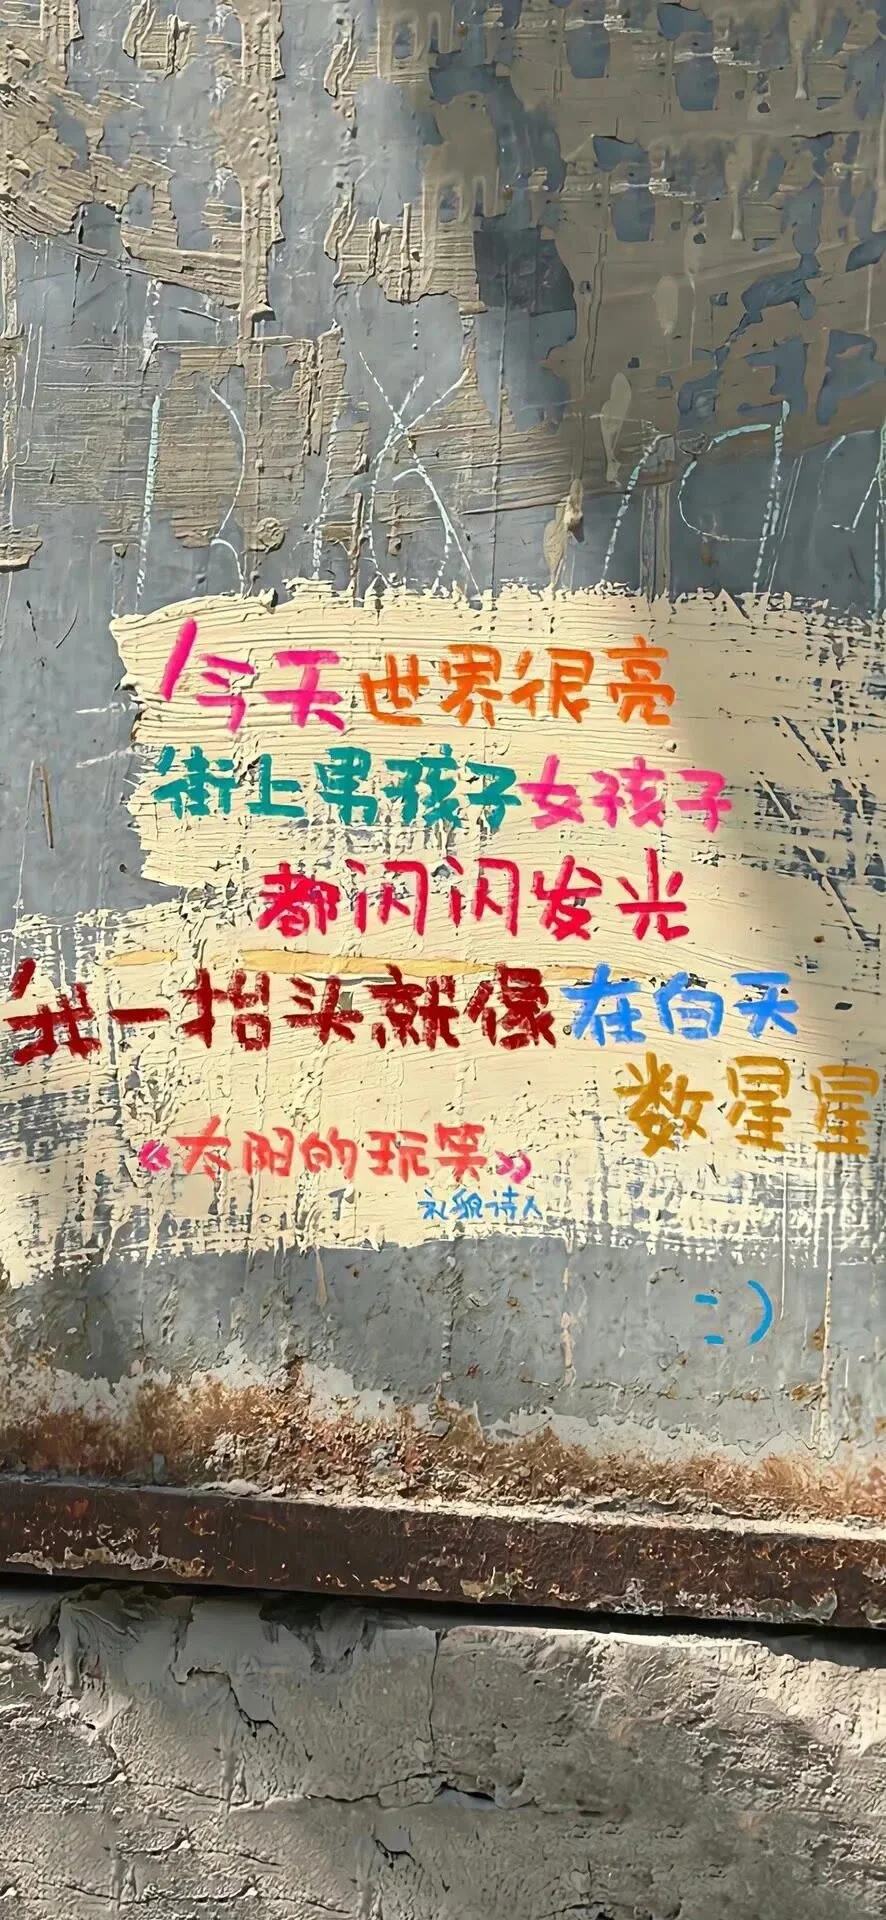 今天世界很亮
街上男孩子女孩子
都闪闪发光
我一抬头就像在白天
数星星
《太阳的玩笑》
礼貌诗人
:)